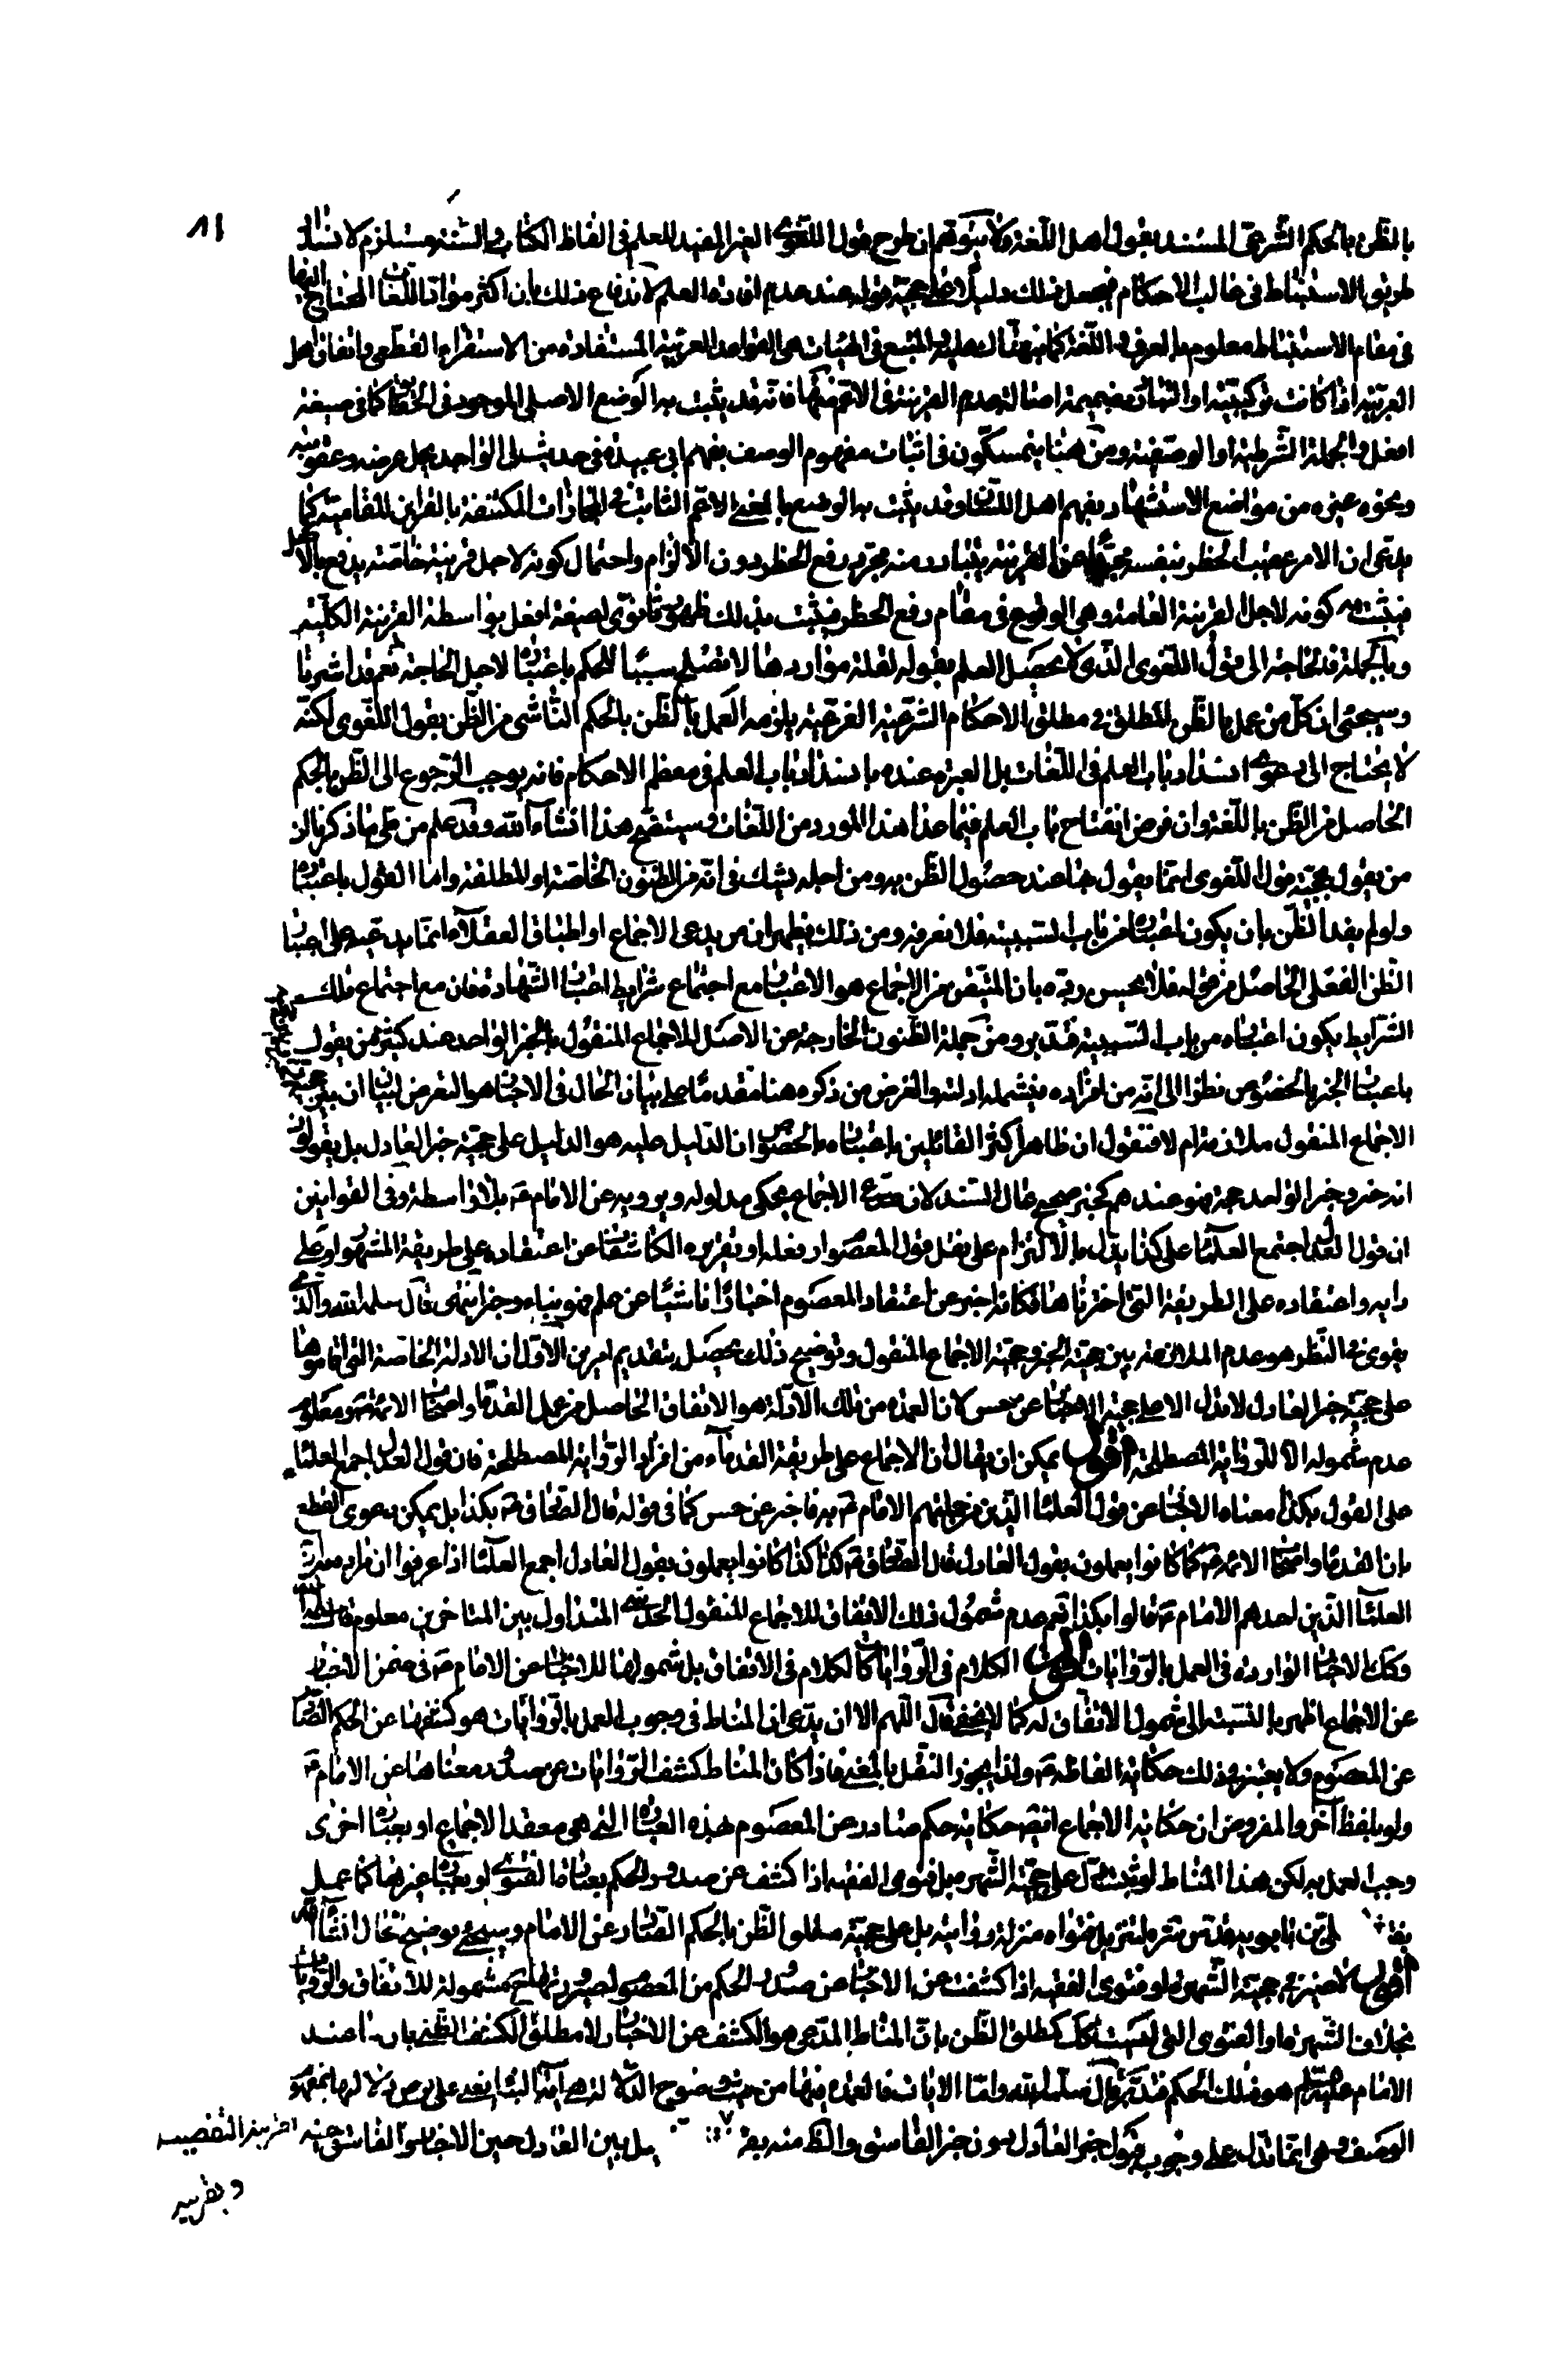 ٨١
بالظن بالحكم الشرعى المستند بقول اهل اللغة ولا يتوهم ان طرح قول اللغوى الغير المفيد للعلم فى الفاظ الكتاب والسنة مستلزم لانسداد
طريق الاستنباط فى غالب الاحكام فيجعل ذلك دليلا على حجية قوله عند عدم افادته العلم لاندفاع ذلك بان اكثر مواد اللغات المحتاج اليها
فى مقام الاستنباط معلوم بالعرف واللغة كما نبهناك عليه والمتبع فى الهيئات هى القواعد العربية المستفادة من الاستقراء القطعى واتفاق اهل
العربية اذا كانت توكيفية او التبادر بضميمة اصالة عدم القرينة فى الاعم منها فانه قد يثبت به الوضع الاصلى الموجود فى الحقايق كما فى صيغة
افعل والجملة الشرطية او الوصفية ومن هنا يتمسكون فى اثبات مفهوم الوصف بفهم ابى عبيدة فى حديث لى الواجد يحل عرضه وعقوبته
ونحوه غيره من مواضع الاستشهاد بفهم اهل اللسان وقد يثبت به الوضع بالمعنى الاعم الثابت فى المجازات المكتنفة بالقراين المقامية كما
يدعى ان الامر عقيب الحظر بنفسه مجردا عن القرينة يتبادر منه مجرد رفع الحظر دون الالزام واحتمال كونه لاجل قرينة خاصة يدفع بالاصل
فيثبت به كونه لاجل القرينة العامة وهى الوقوع فى مقام رفع الحظر فيثبت بذلك ظهور ثانوى لصيغة افعل بواسطة القرينة الكلية
وبالجملة فالحاجة الى قول اللغوى الذى لا يحصل العلم بقوله لقلة مواردها لا تصلح سببا للحكم باعتباره لاجل الحاجة نعم قد اشرنا
وسيجئ ان كل من عمل بالظن المطلق فى مطلق الاحكام الشرعية الفرعية يلزمه العمل بالظن بالحكم الناشى من الظن بقول اللغوى لكنه
لا يحتاج الى دعوى انسداد باب العلم فى اللغات بل العبرة عنده بانسداد باب العلم فى معظم الاحكام فانه يوجب الرجوع الى الظن بالحكم
الحاصل من الظن باللغة وان فرض انفتاح باب العلم فيما عدا هذا المورد من اللغات وسيتضح هذا انشاء الله وقد علم من طى ما ذكر بان
من يقول بحجية قول اللغوى انما يقول بها عند حصول الظن به ومن اجله يشك فى انه من الظنون الخاصة او المطلقة واما القول باعتباره
ولو لم يفد الظن بان يكون اعتباره من باب السببية فلا نعرفه ومن ذلك يظهر ان من يدعى الاجماع او اطباق العقلاء انما يدعيه على اعتبار
الظن الفعلى الحاصل من قوله فلا يحسن رده بان المتيقن من الاجماع هو الاعتبار مع اجتماع شرايط اعتبار الشهادة فان مع اجتماع تلك
الشرايط يكون اعتباره من باب السببية فتدبر ومن جملة الظنون الخارجة عن الاصل الاجماع المنقول بالخبر الواحد عند كثير من يقول
باعتبار الخبر بالخصوص نظرا الى انه من افراده فيشمله ادلته والغرض من ذكره هنا مقدما على بيان الحال فى الاخبار هو التعرض لبيان ان بين حجيته
الاجماع المنقول ملازمة ام لا فنقول ان ظاهر اكثر القائلين باعتباره بالخصوص ان الدليل عليه هو الدليل على حجية خبر العادل بل يقولون
انه خبر وخبر الواحد حجة فهو عندهم كخبر صحيح عالى السند لان مدعى الاجماع يحكى مدلوله ويرويه عن الامام ع بلا واسطة وفى القوانين
ان قول العدل اجتمع العلماء على كذا يدل بالالتزام على نقل قول المعصوم او فعله او تقريره الكاشفات عن اعتقاده على طريقة المشهور او على
رايه واعتقاده على الطريقة التى اخترناها فكانه اخبر عن اعتقاد المعصوم اخبارا ناشئا عن علم فهو نباء وخبر انتهى قال سلمه الله والذى
يقوى فى النظر هو عدم الملازمة بين حجية الخبر وحجية الاجماع المنقول وتوضيح ذلك يحصل بتقديم امرين الاول ان الادلة الخاصة التى اقاموها
على حجية خبر العادل لا تدل الا على حجية الاخبار عن حس لان العمدة من تلك الادلة هو الاتفاق الحاصل من عمل القدماء واصحاب الائمة ع ومعلوم
عدم شموله الا للرواية المصطلحة اقول يمكن ان يقال ان الاجماع على طريقة القدماء من افراد الرواية المصطلحة فان قول العدل اجمع العلماء
على القول بكذا معناه الاخبار عن قول العلماء الذين من جملتهم الامام ع به فاخبر عن حس كما فى قوله قال الصادق ع بكذا بل يمكن دعوى القطع
بان القدماء واصحاب الائمة ع كما كانوا يعملون بقول العادل قال الصادق ع كذا كانوا يعملون بقول العادل اجمع العلماء اذا عرفوا ان مراده
العلماء الذين احدهم الامام ع قالوا بكذا نعم عدم شمول ذلك الاتفاق للاجماع المنقول المتداول بين المتاخرين معلوم قال سلمه الله
وكك الاخبار الواردة فى العمل بالروايات اقول الكلام فى الروايات كالكلام فى الاتفاق بل شمولها للاخبار عن الامام ع فى ضمن الاخبار
عن الاجماع اظهر بالنسبة الى شمول الاتفاق له كما لا يخفى قال اللهم الا ان يدعى ان المناط فى وجوب العمل بالروايات هو كشفها عن الحكم الصادر
عن المعصوم ولا يعتبر فى ذلك حكاية الفاظه ع ولذا يجوز النقل بالمعنى فاذا كان المناط كشف الروايات عن صدور معناها عن الامام ع
ولو بلفظ آخر والمفروض ان حكاية الاجماع ايضا حكاية حكم صادر عن المعصوم بهذه العبارة التى هى معقد الاجماع او بعبارة اخرى
وجب العمل به لكن هذا المناط لو ثبت دل على حجية الشهرة بل فتوى الفقيه اذا كشف عن صدور الحكم بعبارة الفتوى او بعبارة غيرها كما عمل
بفتاوى على بن بابويه قدس سره لتنزيل فتواه منزلة روايته بل على حجية مطلق الظن بالحكم الصادر عن الامام وسيجئ توضيح الحال انشاء الله
اقول لا ضير فى حجية الشهرة او فتوى الفقيه اذا كشفت عن الاخبار عن صدور الحكم من المعصوم لصيرورتها ح مشمولة للاتفاق والروايات
بخلاف الشهرة او الفتوى التى ليست كك كمطلق الظن بان المناط المدعى هو الكشف عن الاخبار لا مطلق الكشف الظنى بان ما عند
الامام عليه السلام هو ذلك الحكم فتدبر قال سلمه الله واما الايات فالعمدة فيها من حيث وضوح الدلالة هى اية النبا بعد على من لا لها بمفهوم
الوصف وهى انما تدل على وجوب قبول خبر العادل دون خبر الفاسق والظ منه بقر بل بين العادل حين الاخبار والفاسق حينه بقرينة التفصيل
وبقرينة